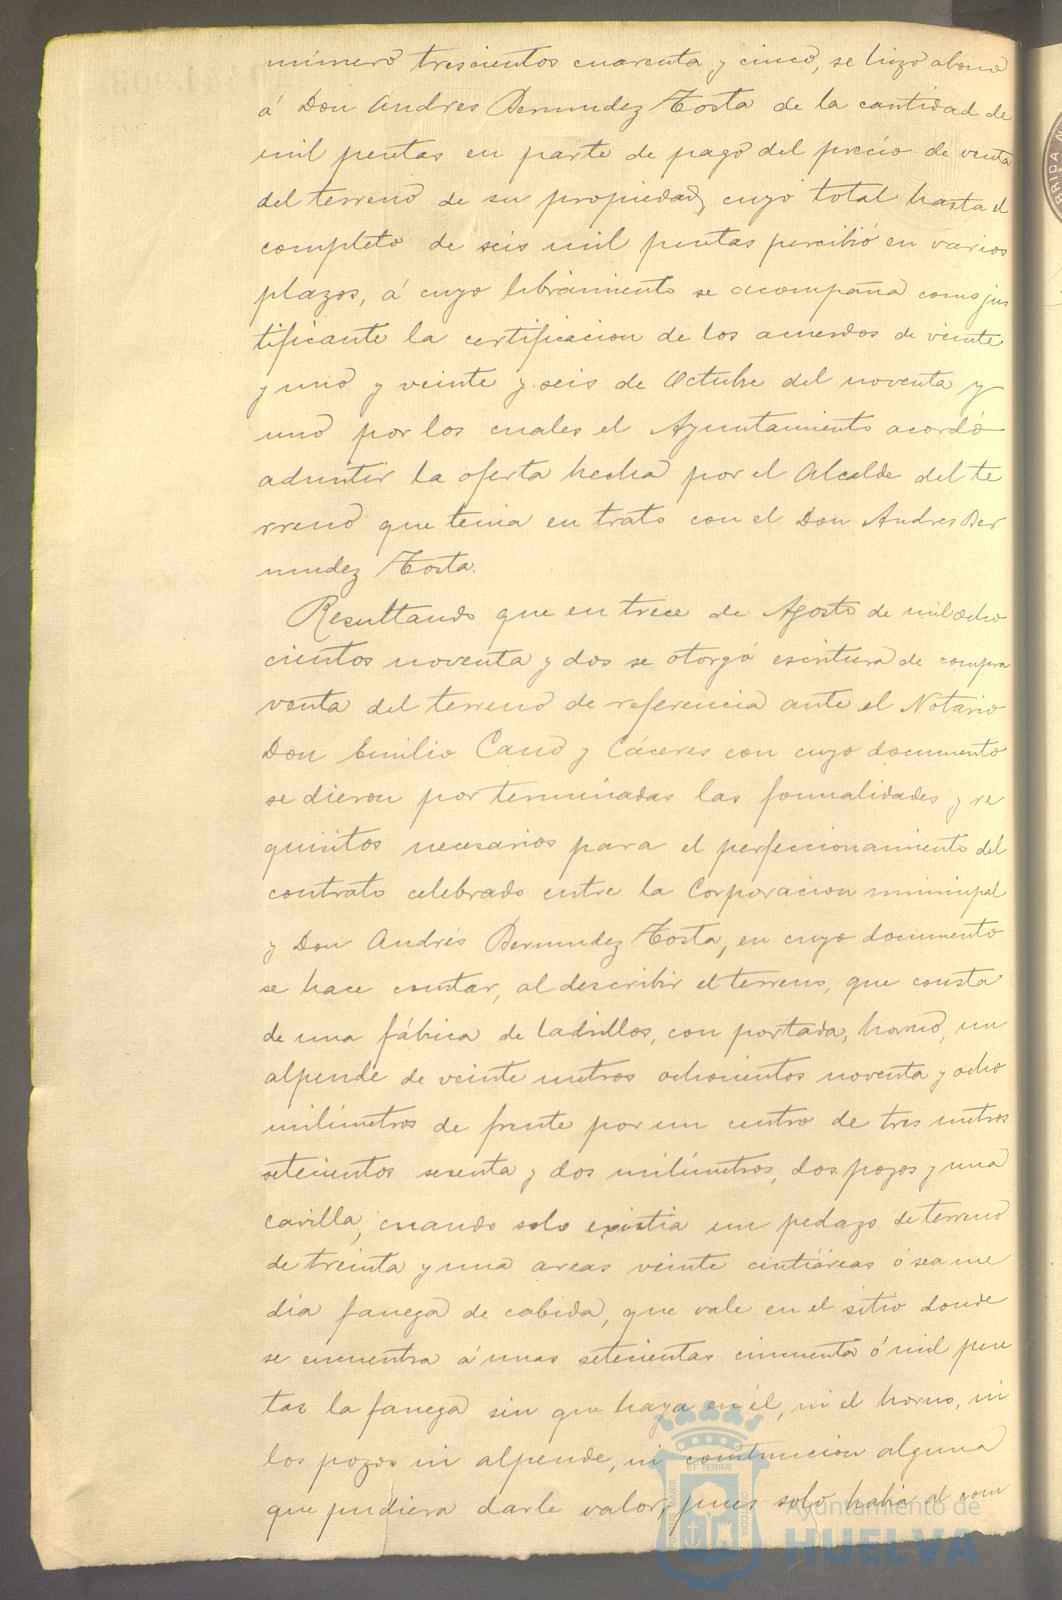 número trescientos cuarenta y cinco, se hizo abono
á Don Andres Bermudez Tosta de la cantidad de
mil pesetas en parte de pago del precio de venta
del terreno de su propiedad, cuyo total hasta el
completo de seis mil pesetas percibió en varios
plazos, á cuyo libramiento se acompaña como jus
tificante la certificacion de los acuerdos de veinte
y uno y veinte y seis de Octubre del noventa y
uno por los cuales el Ayuntamiento acordó
admitir la oferta hecha por el Alcalde del te
rreno que tenia en trato con el Don Andres Ber
mudez Tosta.
Resultando que en trece de Agosto de mil ocho
cientos noventa y dos se otorgó escritura de compra
venta del terreno de referencia ante el Notario
Don Emilio Cano y Cáceres con cuyo documento
se dieron por terminadas las formalidades y re
quisitos necesarios para el perfeccionamiento del
contrato celebrado entre la Corporacion municipal
y Don Andrés Bermudez Tosta, en cuyo documento
se hace constar, al describir el terreno, que consta
de una fábrica de ladrillos, con portada, horno, un
alpende de veinte metros ochocientos noventa y ocho
milimetros de frente por un centro de tres metros
setecientos sesenta y dos milimetros, dos pozos y una
cavilla, cuando solo existia un pedazo de terreno
de treinta y una areas veinte centiáreas ó sea me
dia fanega de cabida, que vale en el sitio donde
se encuentra á unas setecientas cincuenta ó mil pese
tas la fanega sin que haya en él, ni el horno, ni
los pozos ni alpende, ni construccion alguna
que pudiera darle valor, pues solo habia el com
Ayuntamiento de
HUELVA